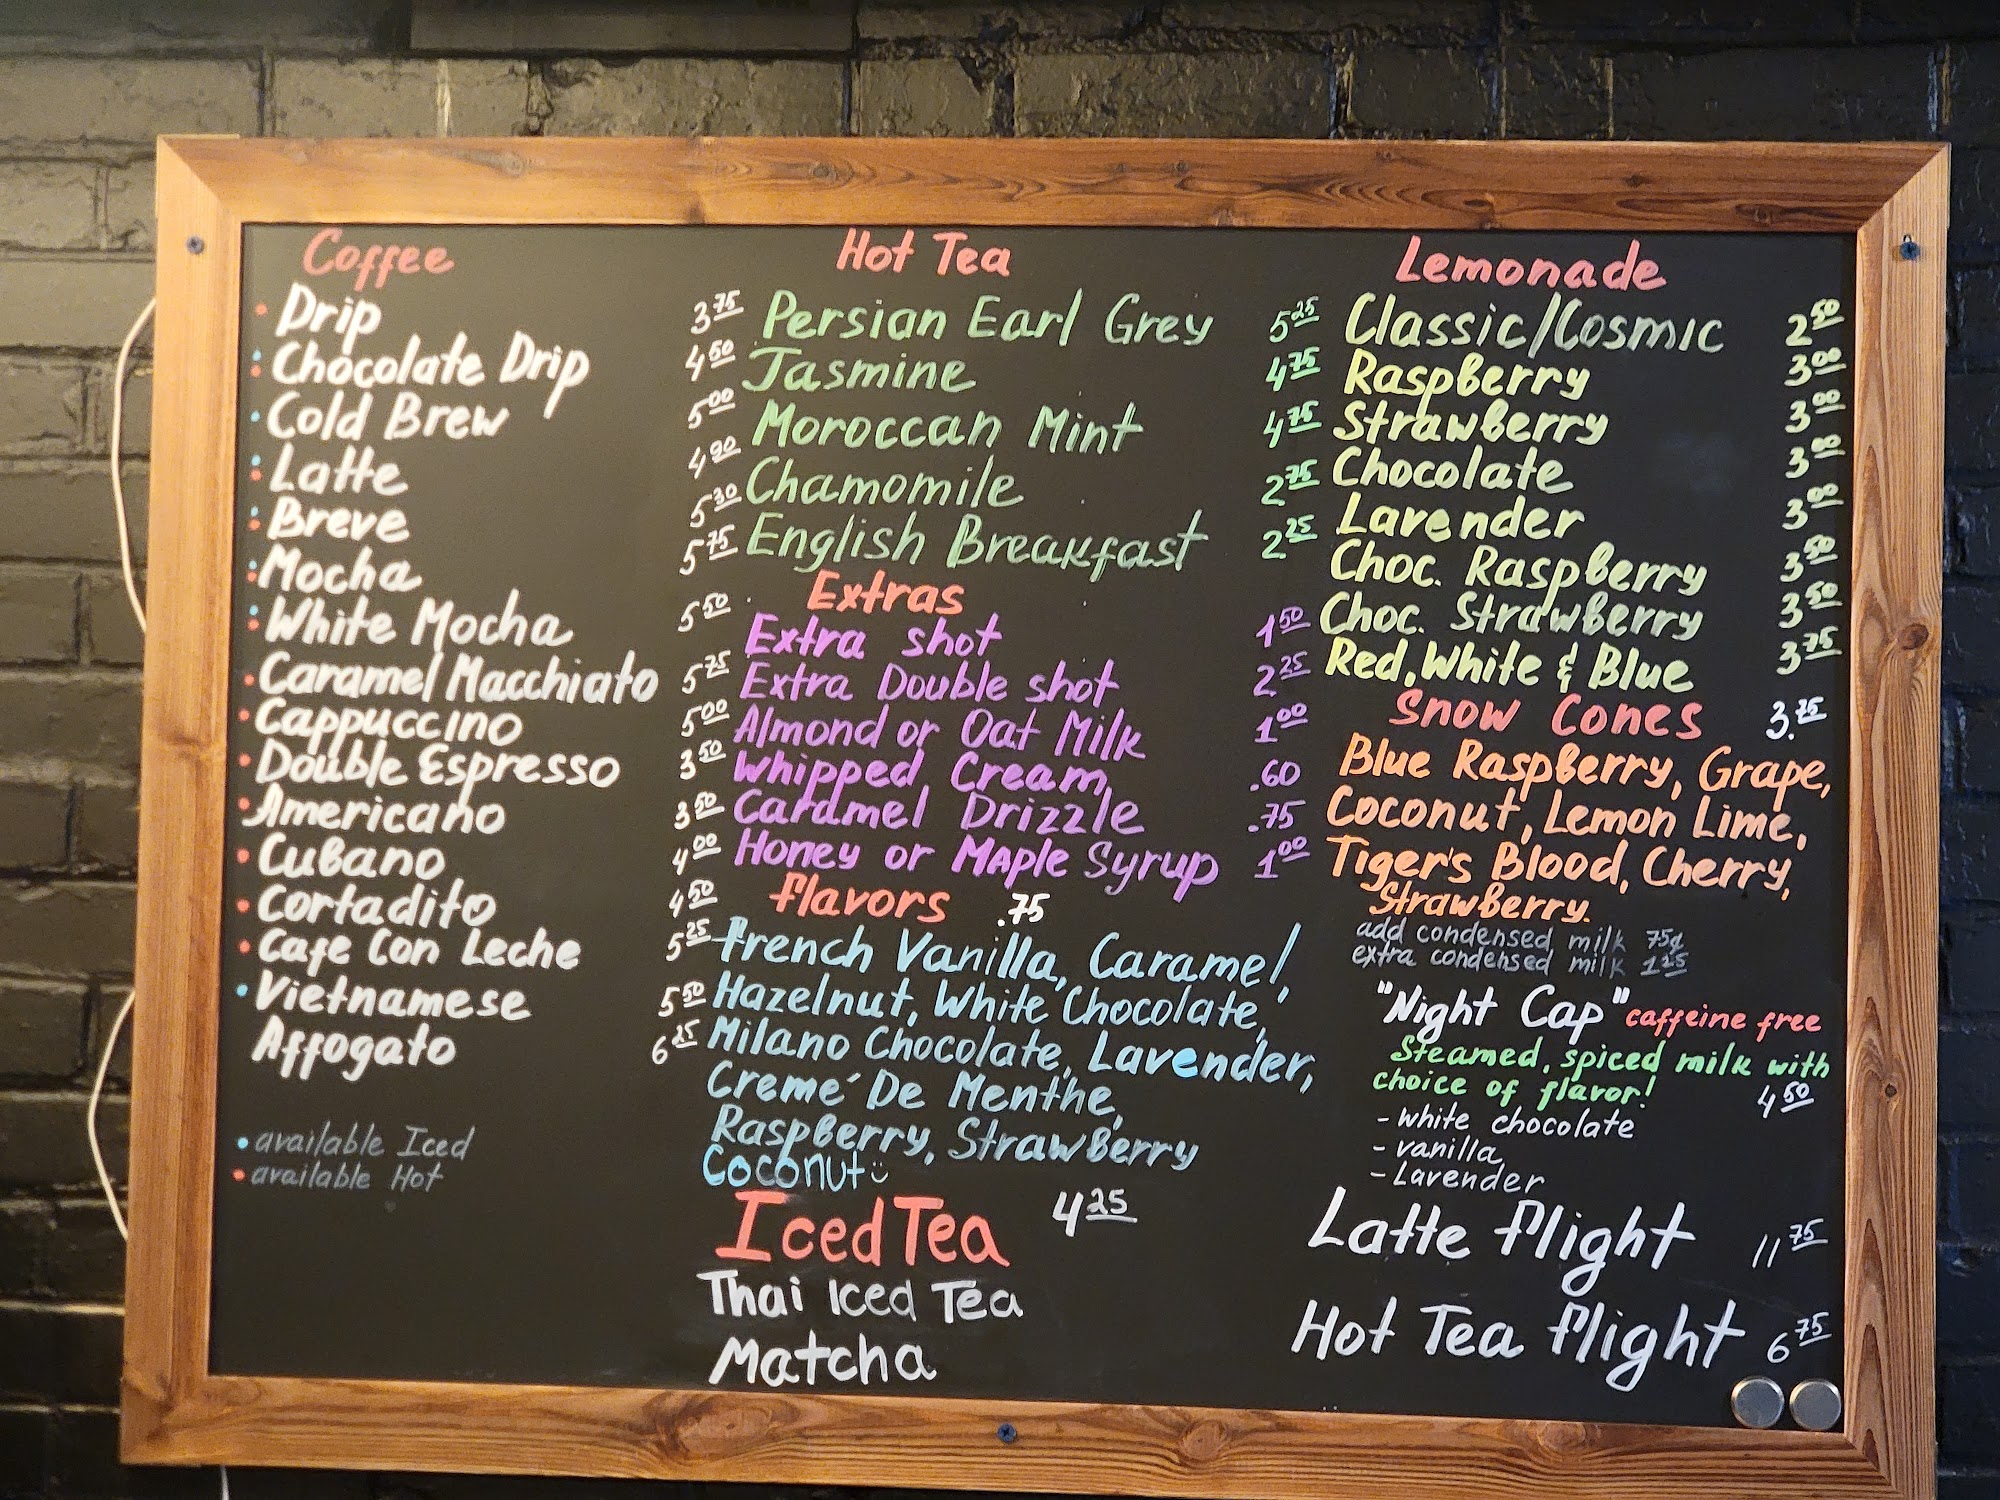 Coffee
Drip 3 75
Chocolate Drip 4 50
Cold Brew 5 00
Latte 4 90
Breve 5 30
Mocha 5 75
White Mocha 5 50
Caramel Macchiato 5 75
Cappuccino 5 00
Double Espresso 3 50
Americano 3 50
Cubano 4 00
Cortadito 4 50
Cafe Con Leche 5 25
Vietnamese 5 50
Affogato 6 25
• available Iced
• available Hot
Hot Tea
Persian Earl Grey 5 25
Jasmine 4 75
Moroccan Mint 4 75
Chamomile 2 75
English Breakfast 2 25
Extras
Extra shot 1 50
Extra Double shot 2 25
Almond or Oat Milk 1 00
Whipped Cream .60
Caramel Drizzle .75
Honey or Maple Syrup 1 00
Flavors .75
French Vanilla, Caramel,
Hazelnut, White Chocolate,
Milano Chocolate, Lavender,
Cremé De Menthe,
Raspberry, Strawberry
Coconut
Iced Tea 4 25
Thai Iced Tea
Matcha
Lemonade
Classic/Cosmic 2 50
Raspberry 3 00
Strawberry 3 00
Chocolate 3 00
Lavender 3 00
Choc. Raspberry 3 50
Choc. Strawberry 3 50
Red, White & Blue 3 75
Snow Cones 3.75
Blue Raspberry, Grape,
Coconut, Lemon Lime,
Tiger's Blood, Cherry,
Strawberry.
add condensed milk 75¢
extra condensed milk 1 25
"Night Cap" caffeine free
Steamed, spiced milk with
choice of flavor! 4 50
- white chocolate
- vanilla
- Lavender
Latte flight 11 75
Hot Tea flight 6 75